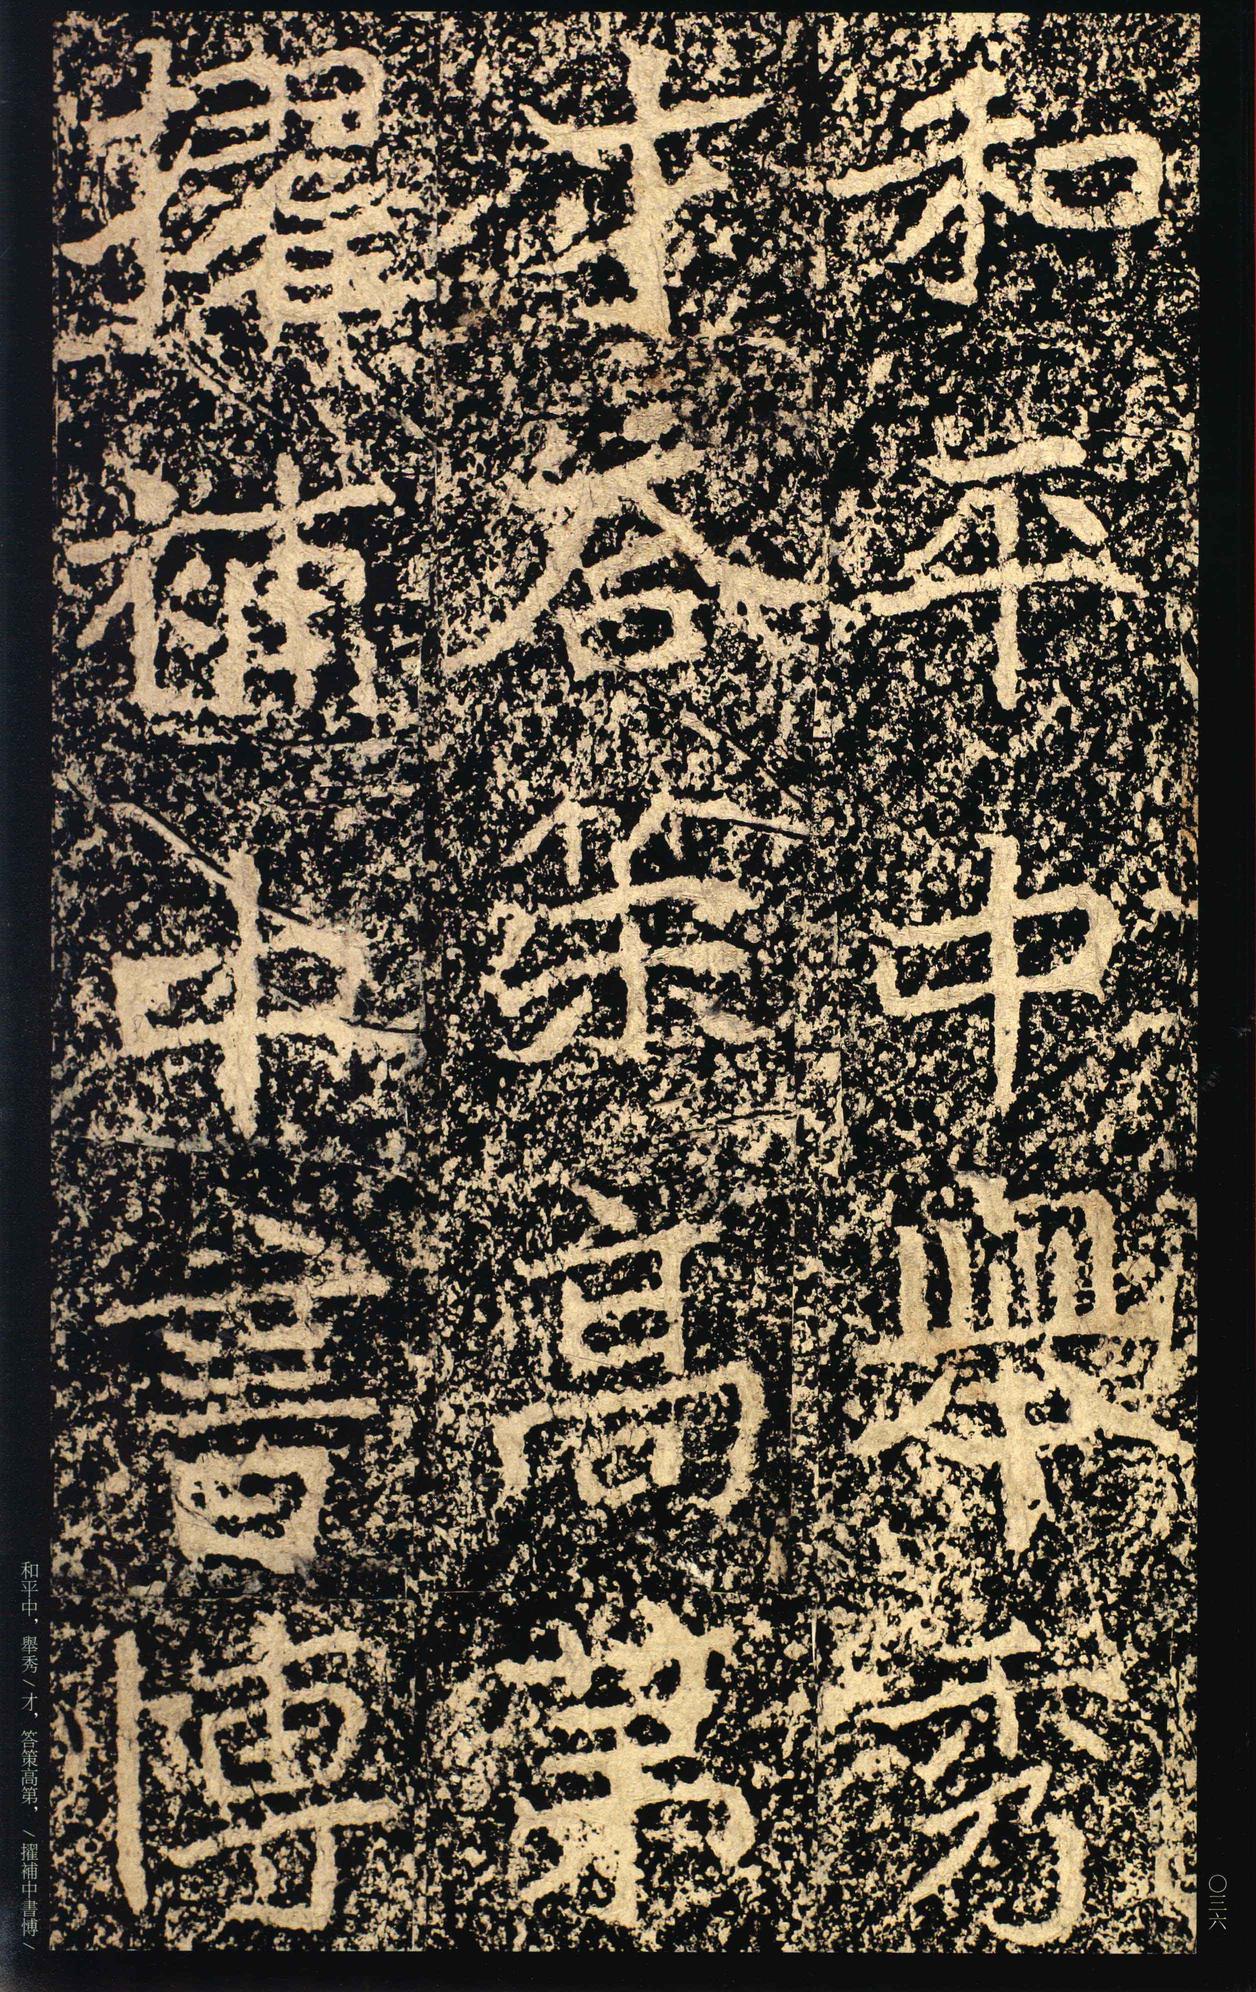 和平中舉秀
才答策高第
擢補中書博
和平中，舉秀／才，答策高第，／擢補中書博／
〇三六